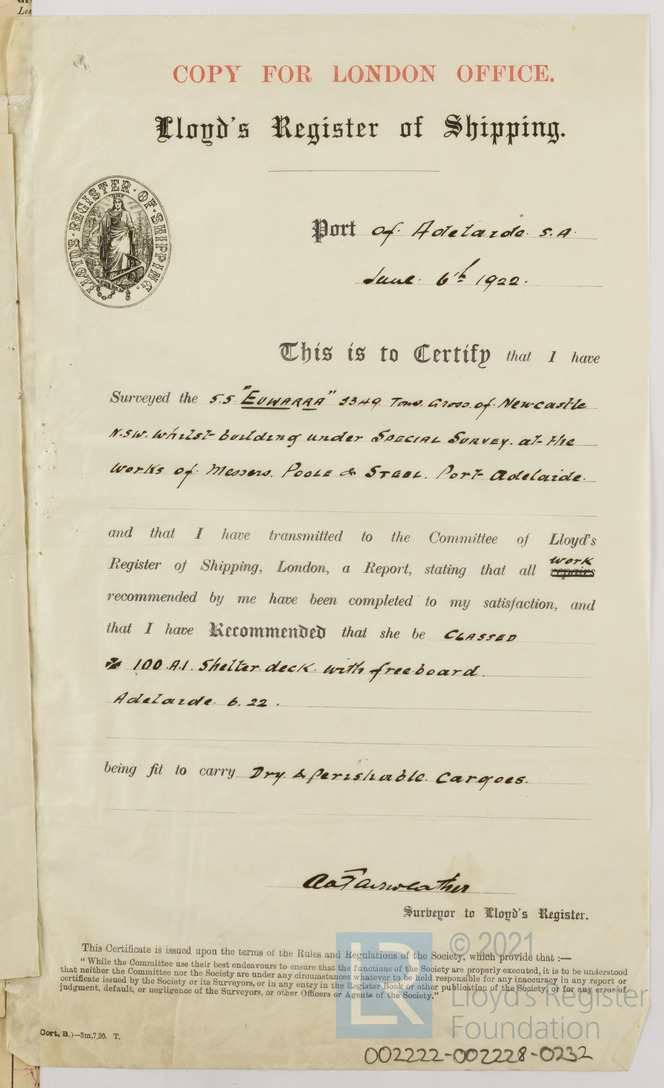 COPY FOR LONDON OFFICE.
Lloyd's Register of Shipping.
LLOYD'S · REGISTER · OF · SHIPPING.
Port of Adelaide S.A.
June 6th 1922.
This is to Certify that I have
Surveyed the S.S "EUWARRA" 3349 Tons Gross. of Newcastle
N.S.W. whilst building under SPECIAL SURVEY. at the
works of Messrs. POOLE & STEEL. Port Adelaide.
and that I have transmitted to the Committee of Lloyd's
work
Register of Shipping, London, a Report, stating that all repairs
recommended by me have been completed to my satisfaction, and
that I have Recommended that she be CLASSED
✠ 100.A.1. Shelter deck. with freeboard.
Adelaide 6.22.
being fit to carry Dry & perishable Cargoes.
Surveyor to Lloyd's Register.
This Certificate is issued upon the terms of the Rules and Regulations of the Society, which provide that :—
"While the Committee use their best endeavours to ensure that the functions of the Society are properly executed, it is to be understood
that neither the Committee nor the Society are under any circumstances whatever to be held responsible for any inaccuracy in any report or
certificate issued by the Society or its Surveyors, or in any entry in the Register Book or other publication of the Society, or for any error of
judgment, default, or negligence of the Surveyors, or other Officers or Agents of the Society."
Cert. B.)—3m,7,20. T.
LR
© 2021
Lloyd's Register
Foundation
002222-002228-0232